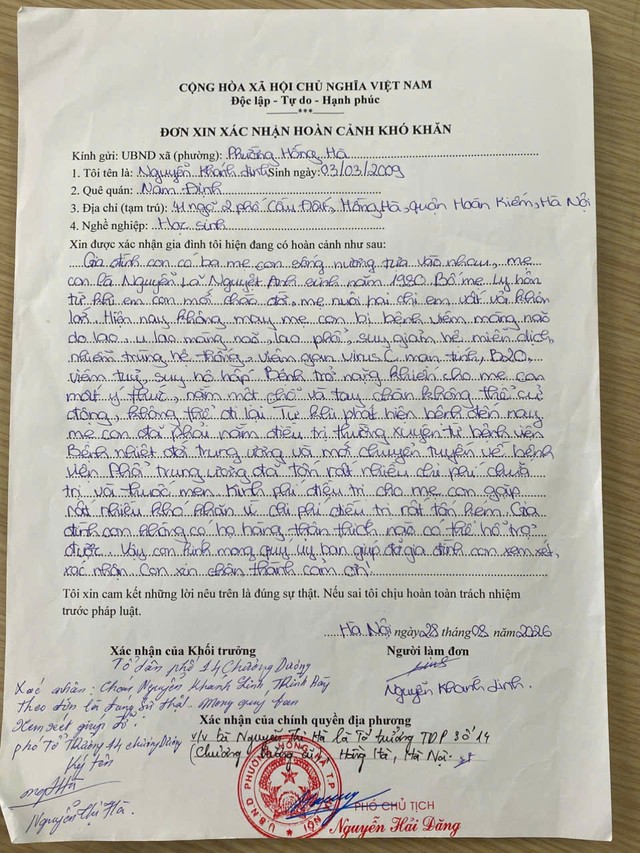 CỘNG HÒA XÃ HỘI CHỦ NGHĨA VIỆT NAM
Độc lập - Tự do - Hạnh phúc
***
ĐƠN XIN XÁC NHẬN HOÀN CẢNH KHÓ KHĂN
Kính gửi: UBND xã (phường): Phường Hồng Hà
1. Tôi tên là: Nguyễn Khánh Linh Sinh ngày: 03/03/2009
2. Quê quán: Nam Định
3. Địa chỉ (tạm trú): 41 ngõ 2 phố Cầu Đất, Hồng Hà, quận Hoàn Kiếm, Hà Nội
4. Nghề nghiệp: Học sinh
Xin được xác nhận gia đình tôi hiện đang có hoàn cảnh như sau:
Gia đình con có ba mẹ con sống nương tựa vào nhau, mẹ
con là Nguyễn Lã Nguyệt Anh sinh năm 1980. Bố mẹ ly hôn
từ khi em con mới chào đời, mẹ nuôi hai chị em vất vả khôn
lớn. Hiện nay không may mẹ con bị bệnh viêm màng não
do lao, u lao màng não, lao phổi, suy giảm hệ miễn dịch,
nhiễm trùng hệ thống, viêm gan virus C mạn tính, B20,
viêm tuỷ, suy hô hấp. Bệnh trở nặng khiến cho mẹ con
mất ý thức, nằm một chỗ và tay chân không thể cử
động, không thể đi lại. Từ khi phát hiện bệnh đến nay
mẹ con đã phải nằm điều trị thường xuyên từ bệnh viện
Bệnh nhiệt đới trung ương và mới chuyển tuyến về bệnh
viện Phổi trung ương đã tốn rất nhiều chi phí chữa
trị và thuốc men. Kinh phí điều trị cho mẹ con gặp
rất nhiều khó khăn vì chi phí điều trị rất tốn kém. Gia
đình con không có họ hàng thân thích nào có thể hỗ trợ
được. Vậy con kính mong quý uỷ ban giúp đỡ gia đình con xem xét,
xác nhận. Con xin chân thành cảm ơn!
Tôi xin cam kết những lời nêu trên là đúng sự thật. Nếu sai tôi chịu hoàn toàn trách nhiệm
trước pháp luật.
Hà Nội ngày 28 tháng 08 năm 2026
Xác nhận của Khối trưởng
Người làm đơn
Tổ dân phố 14 Chương Dương
Linh
Nguyễn Khánh Linh.
Xác nhận: Cháu Nguyễn Khánh Linh
theo đơn là đúng sự thật. Mong quý ban
Xem xét giúp đỡ.
phó Tổ Trưởng 14 Chương Dương
Ký tên
Hà
Nguyễn Thị Hà.
Xác nhận của chính quyền địa phương
v/v bà Nguyễn Thị Hà là Tổ trưởng TDP số 14
(Chương Dương cũ) Hồng Hà, Hà Nội.
U.B.N.D PHƯỜNG HỒNG HÀ T.P HÀ NỘI
PHÓ CHỦ TỊCH
Nguyễn Hải Đăng